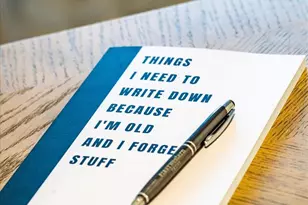 THINGS
I NEED TO
WRITE DOWN
BECAUSE
I'M OLD
AND I FORGE
STUFF